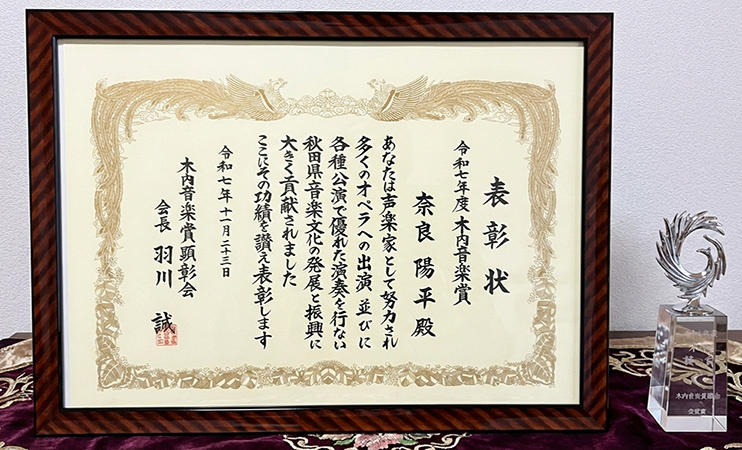 表彰状
令和七年度 木内音楽賞
奈良 陽平 殿
あなたは声楽家として努力され
多くのオペラへの出演 並びに
各種公演で優れた演奏を行ない
秋田県音楽文化の発展と振興に
大きく貢献されました
ここにその功績を讃え表彰します
令和七年十一月二十三日
木内音楽賞顕彰会
会長 羽川 誠
木内音楽賞顕彰会